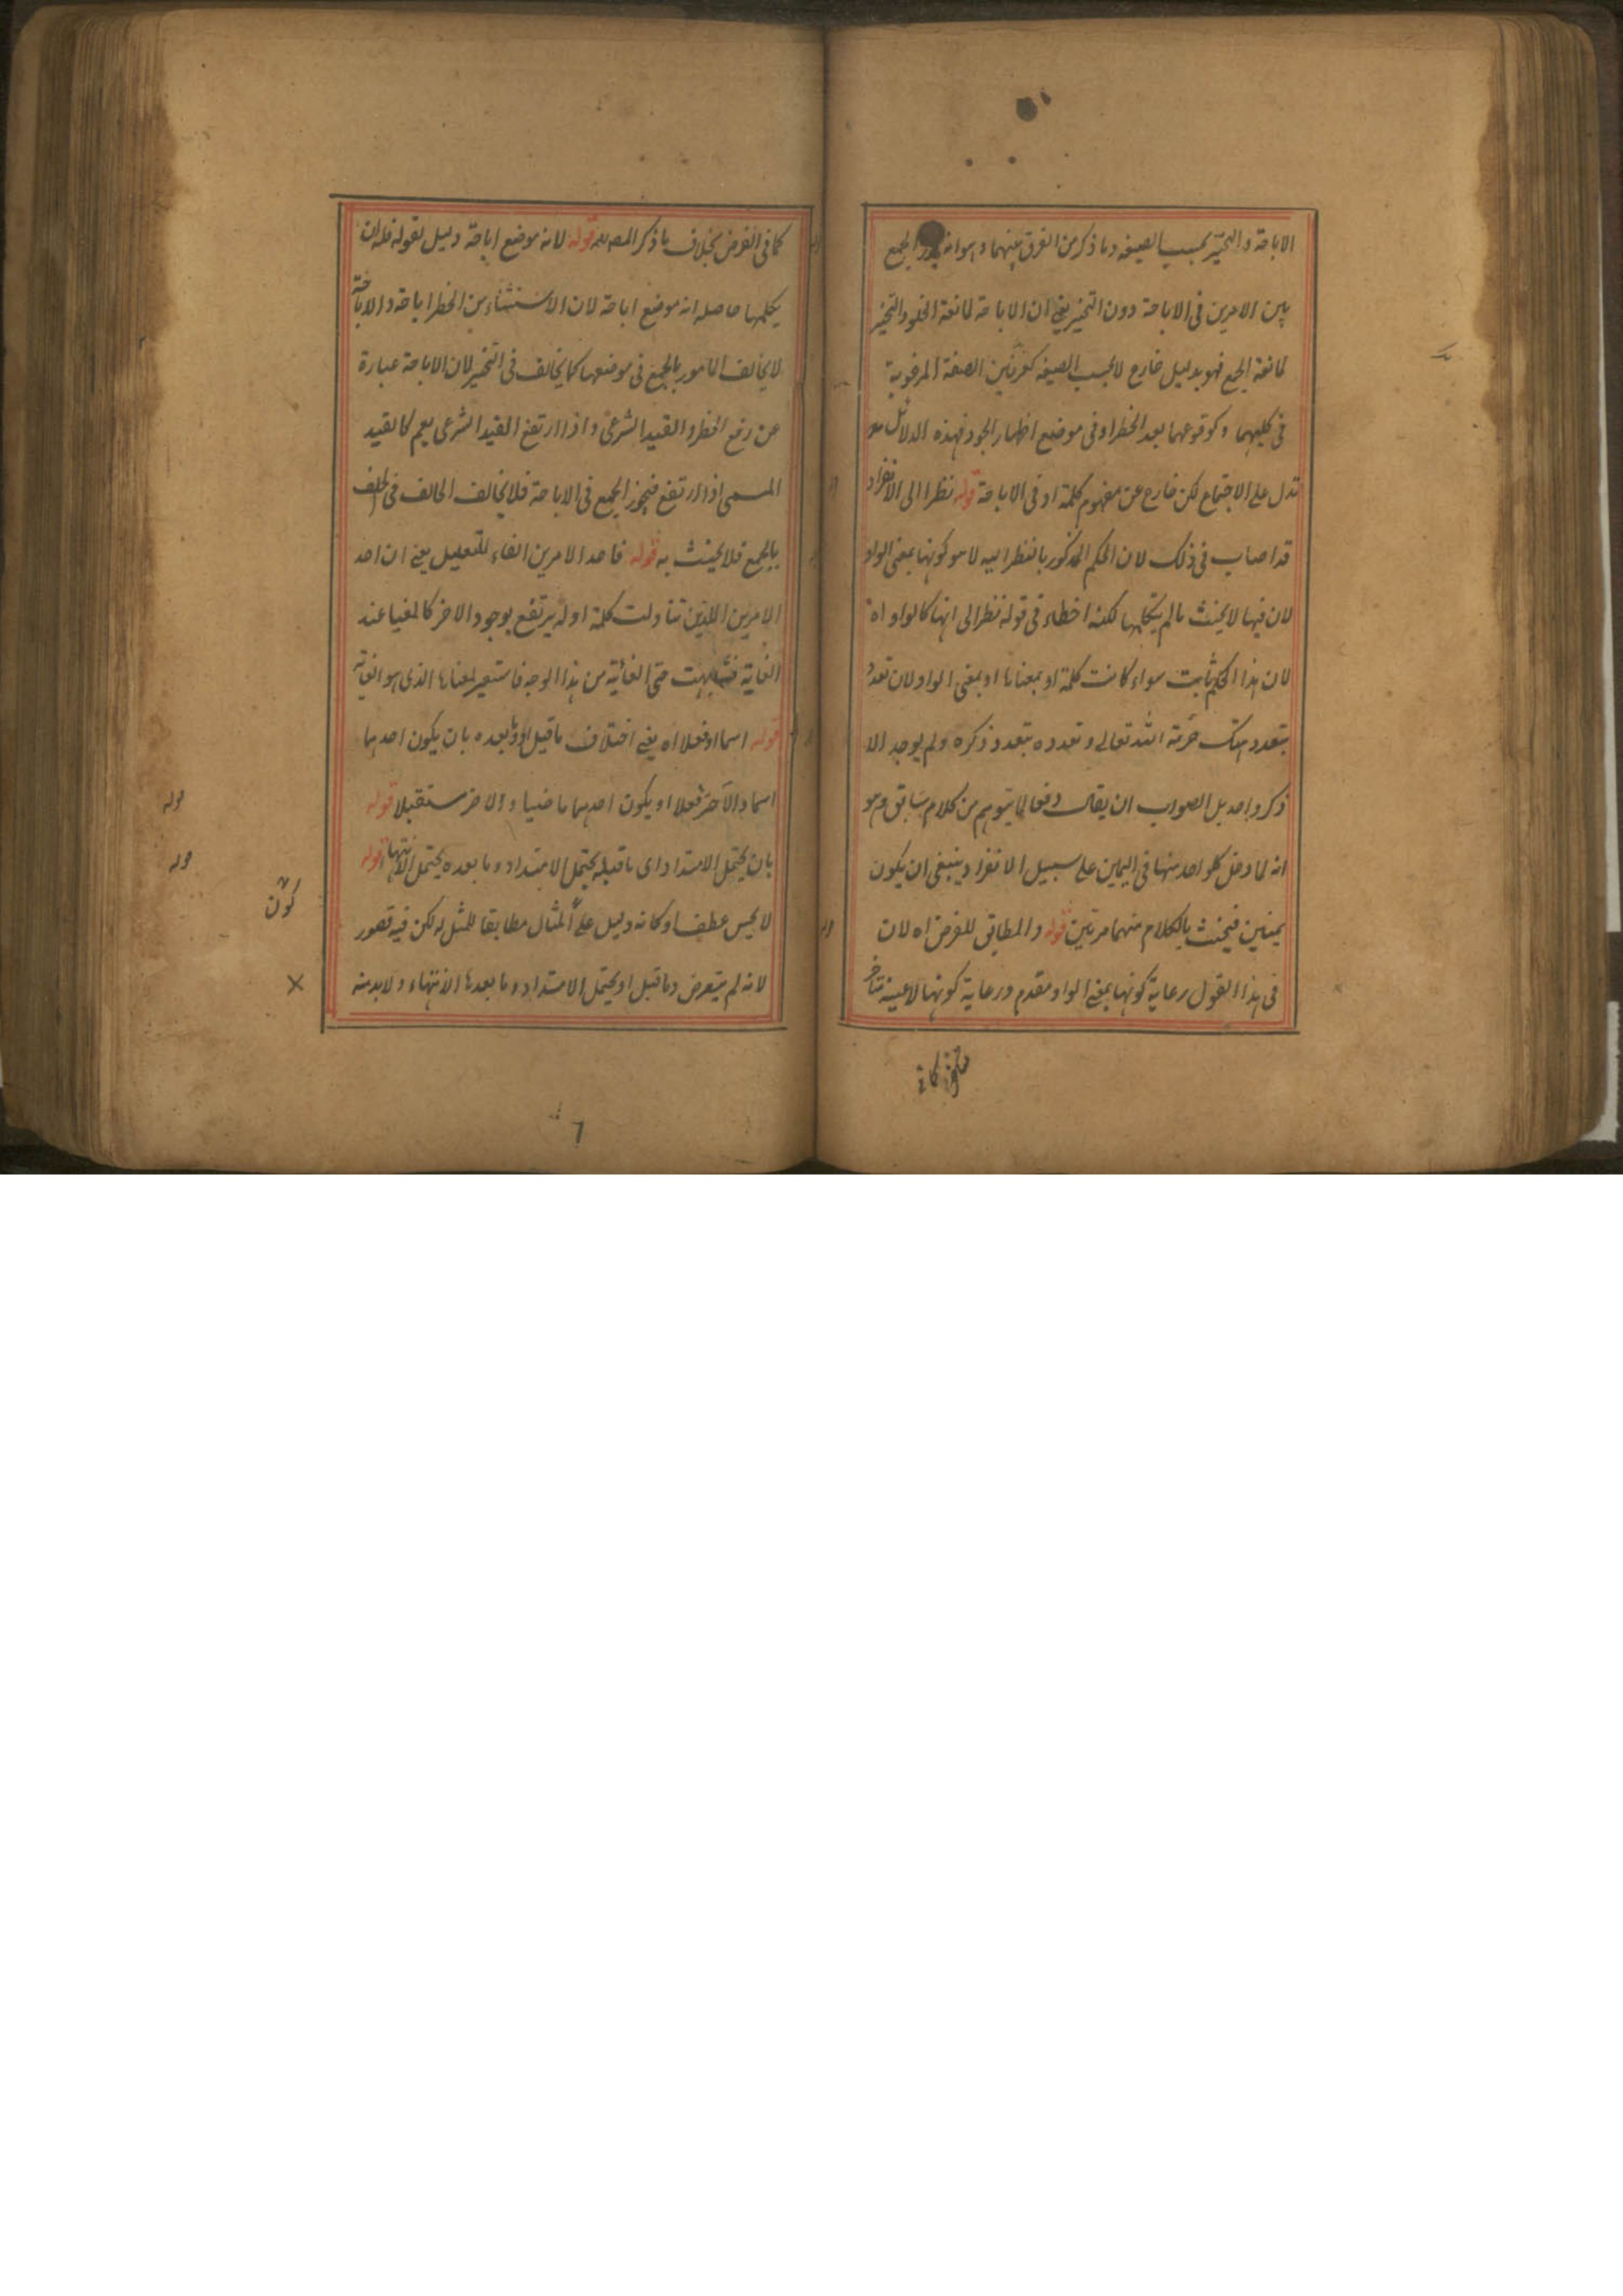 الاباحة والتخيير بحسب الصيغه وما ذكر من الفرق بينهما وهو انه يجوز الجمع
بين الامرين فى الاباحة دون التخيير يعنى ان الاباحة لمانعة الخلو والتخيير
لمانعة الجمع فهو بدليل خارج لا بحسب الصيغه الصفة المرغوبة
فى كليهما وكوقوعهما بعد الحظر او فى موضع اظهار الجود فهذه الدلائل
تدل على الاجتماع لكن خارج عن مفهوم كلمة او فى الاباحة قوله نظرا الى الانفراد
قد اصاب فى ذلك لان الحكم المذكور بالنظر اليه لا هو كونها بمعنى الواو
لان فيها لا يحنث ما لم يتكلمها لكنه اخطاء فى قوله نظرا الى انها كالواو اه
لان هذا الحكم ثابت سواء كانت كلمة او بمعناها او بمعنى الواو لان تعدد
بتعدد هتك حرمة الله تعالى وتعدده بتعدد ذكره ولم يوجد الا
ذكر واحد بل الصواب ان يقال دفعا لما يتوهم من كلام سابق وهو
انه لما دخل كلواحد منها فى اليمين على سبيل الانفراد ينبغى ان يكون
يمينين فيحنث بالكلام منهما مرتين قوله والمطابق للغرض اه لان
فى هذا القول رعاية كونها بمعنى الواو مقدم ورعاية كونها لا عينه متأخر
كما فى الغرض بخلاف ما ذكر المص قوله لانه موضع اباحة دليل لقوله فله ان
يكلمهما حاصله انه موضع اباحة لان الاستثناء من الحظر اباحة والاباحة
لا يخالف المامور بالجمع فى موضعها كما يخالف فى التخيير لان الاباحة عبارة
عن رفع الحظر والقيد الشرعى واذا ارتفع القيد الشرعى يعم كالقيد
الحسى اذا ارتفع فيجوز الجمع فى الاباحة فلا يخالف الحالف فى الحلف
بالجمع فلا يحنث به قوله فاحد الامرين الفاء للتعليل يعنى ان احد
الامرين اللذين تناولت كلمة او له يرتفع بوجود الاخر كالمغيا عند
الغاية فشابهت حتى الغائية من هذا الوجه فاستعير لمعناها الذى هو الغاية
قوله اسما او فعلا اه يعنى اختلاف ما قبل او وما بعده بان يكون احدهما
اسما والآخر فعلا او يكون احدهما ماضيا والاخر مستقبلا قوله
بان يحتمل الامتداد اى ما قبله يحتمل الامتداد وما بعده يحتمل الانتهاء قوله
لا يحسن عطف او كانه دليل على المثال مطابقا للمثل له لكن فيه قصور
لانه لم يتعرض وما قبل او يحتمل الامتداد وما بعدها الانتهاء ولا بد منه
قوله
قوله
كون